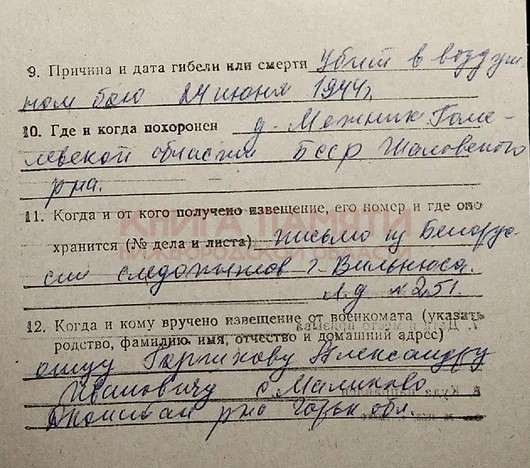 9. Причина и дата гибели или смерти Убит в воздуш
ном бою 24 июня 1944г.
10. Где и когда похоронен д. Межник Гоме
левской области БССР Шаловского
р-на.
11. Когда и от кого получено извещение, его номер и где оно
хранится (№ дела и листа) письмо из Белорус
сии следопытов г. Вильнюса.
л.д № 251.
КНИГА ПАМЯТИ
НИЖЕГОРОДСКОЙ ОБЛАСТИ
12. Когда и кому вручено извещение от военкомата (указать
родство, фамилию, имя, отчество и домашний адрес)
отцу Александру
Ивановичу с. Малиново
р-на Горьк обл.